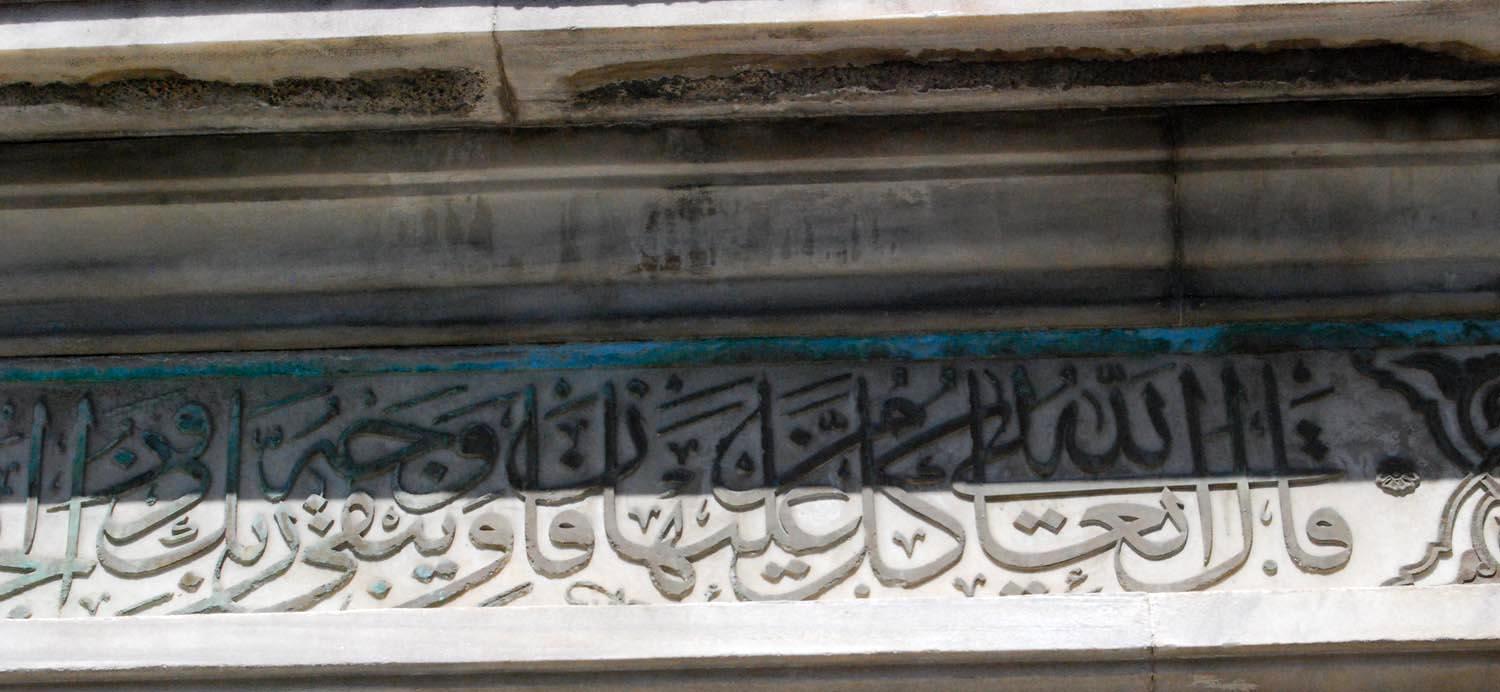 قال الله تعالى كل من عليها فان ويبقى وجه ربك ذو